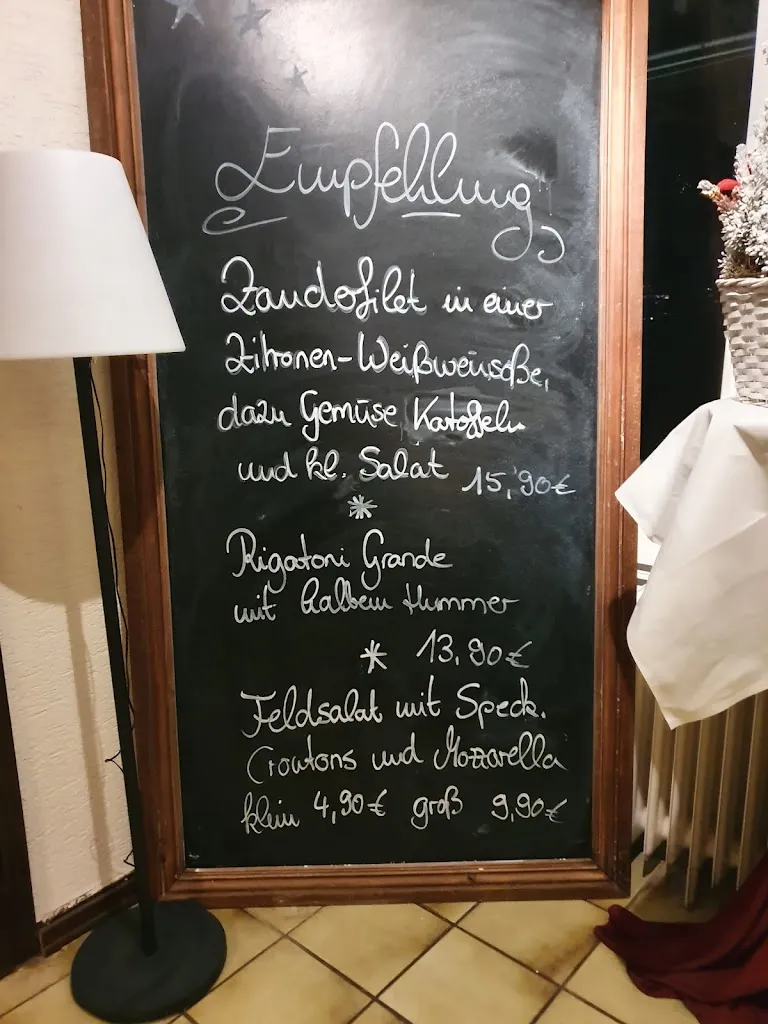 Empfehlung
Zanderfilet in einer
Zitronen-Weißweinsoße,
dazu Gemüse Katoffeln
und kl. Salat 15,90€
*
Rigatoni Grande
mit halbem Hummer
* 13,90€
Feldsalat mit Speck.
Croutons und Mozzarella
klein 4,90€ groß 9,90€